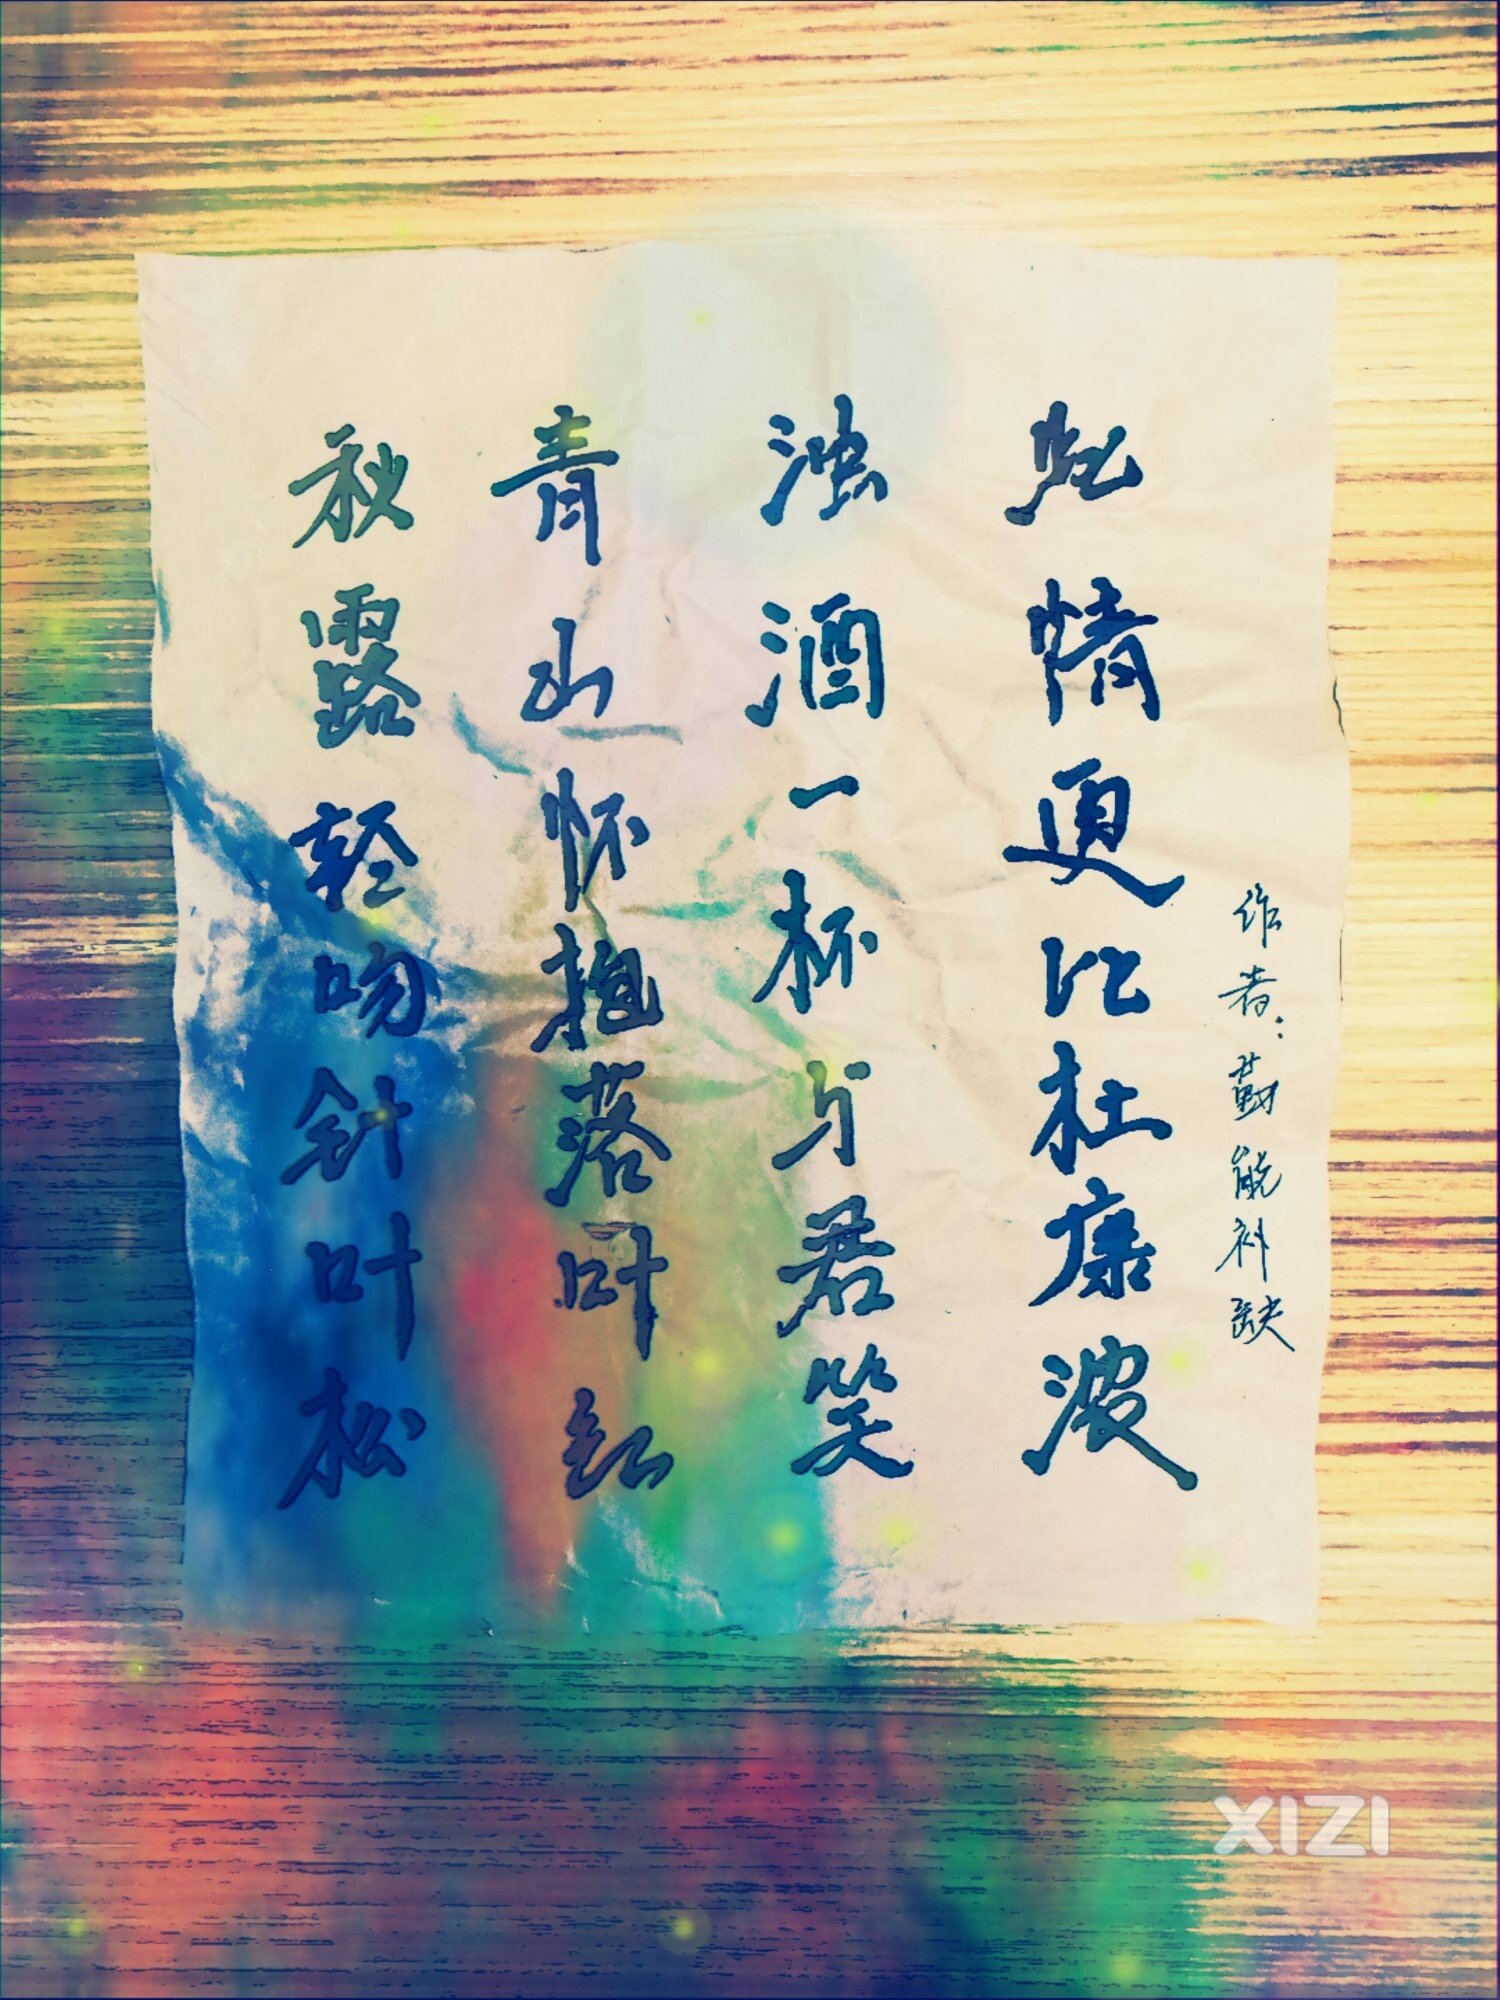 秋露轻吻针叶松
青山怀抱落叶红
浊酒一杯与君笑
此情更比杜康浓
作者:勤能补缺
XIZI